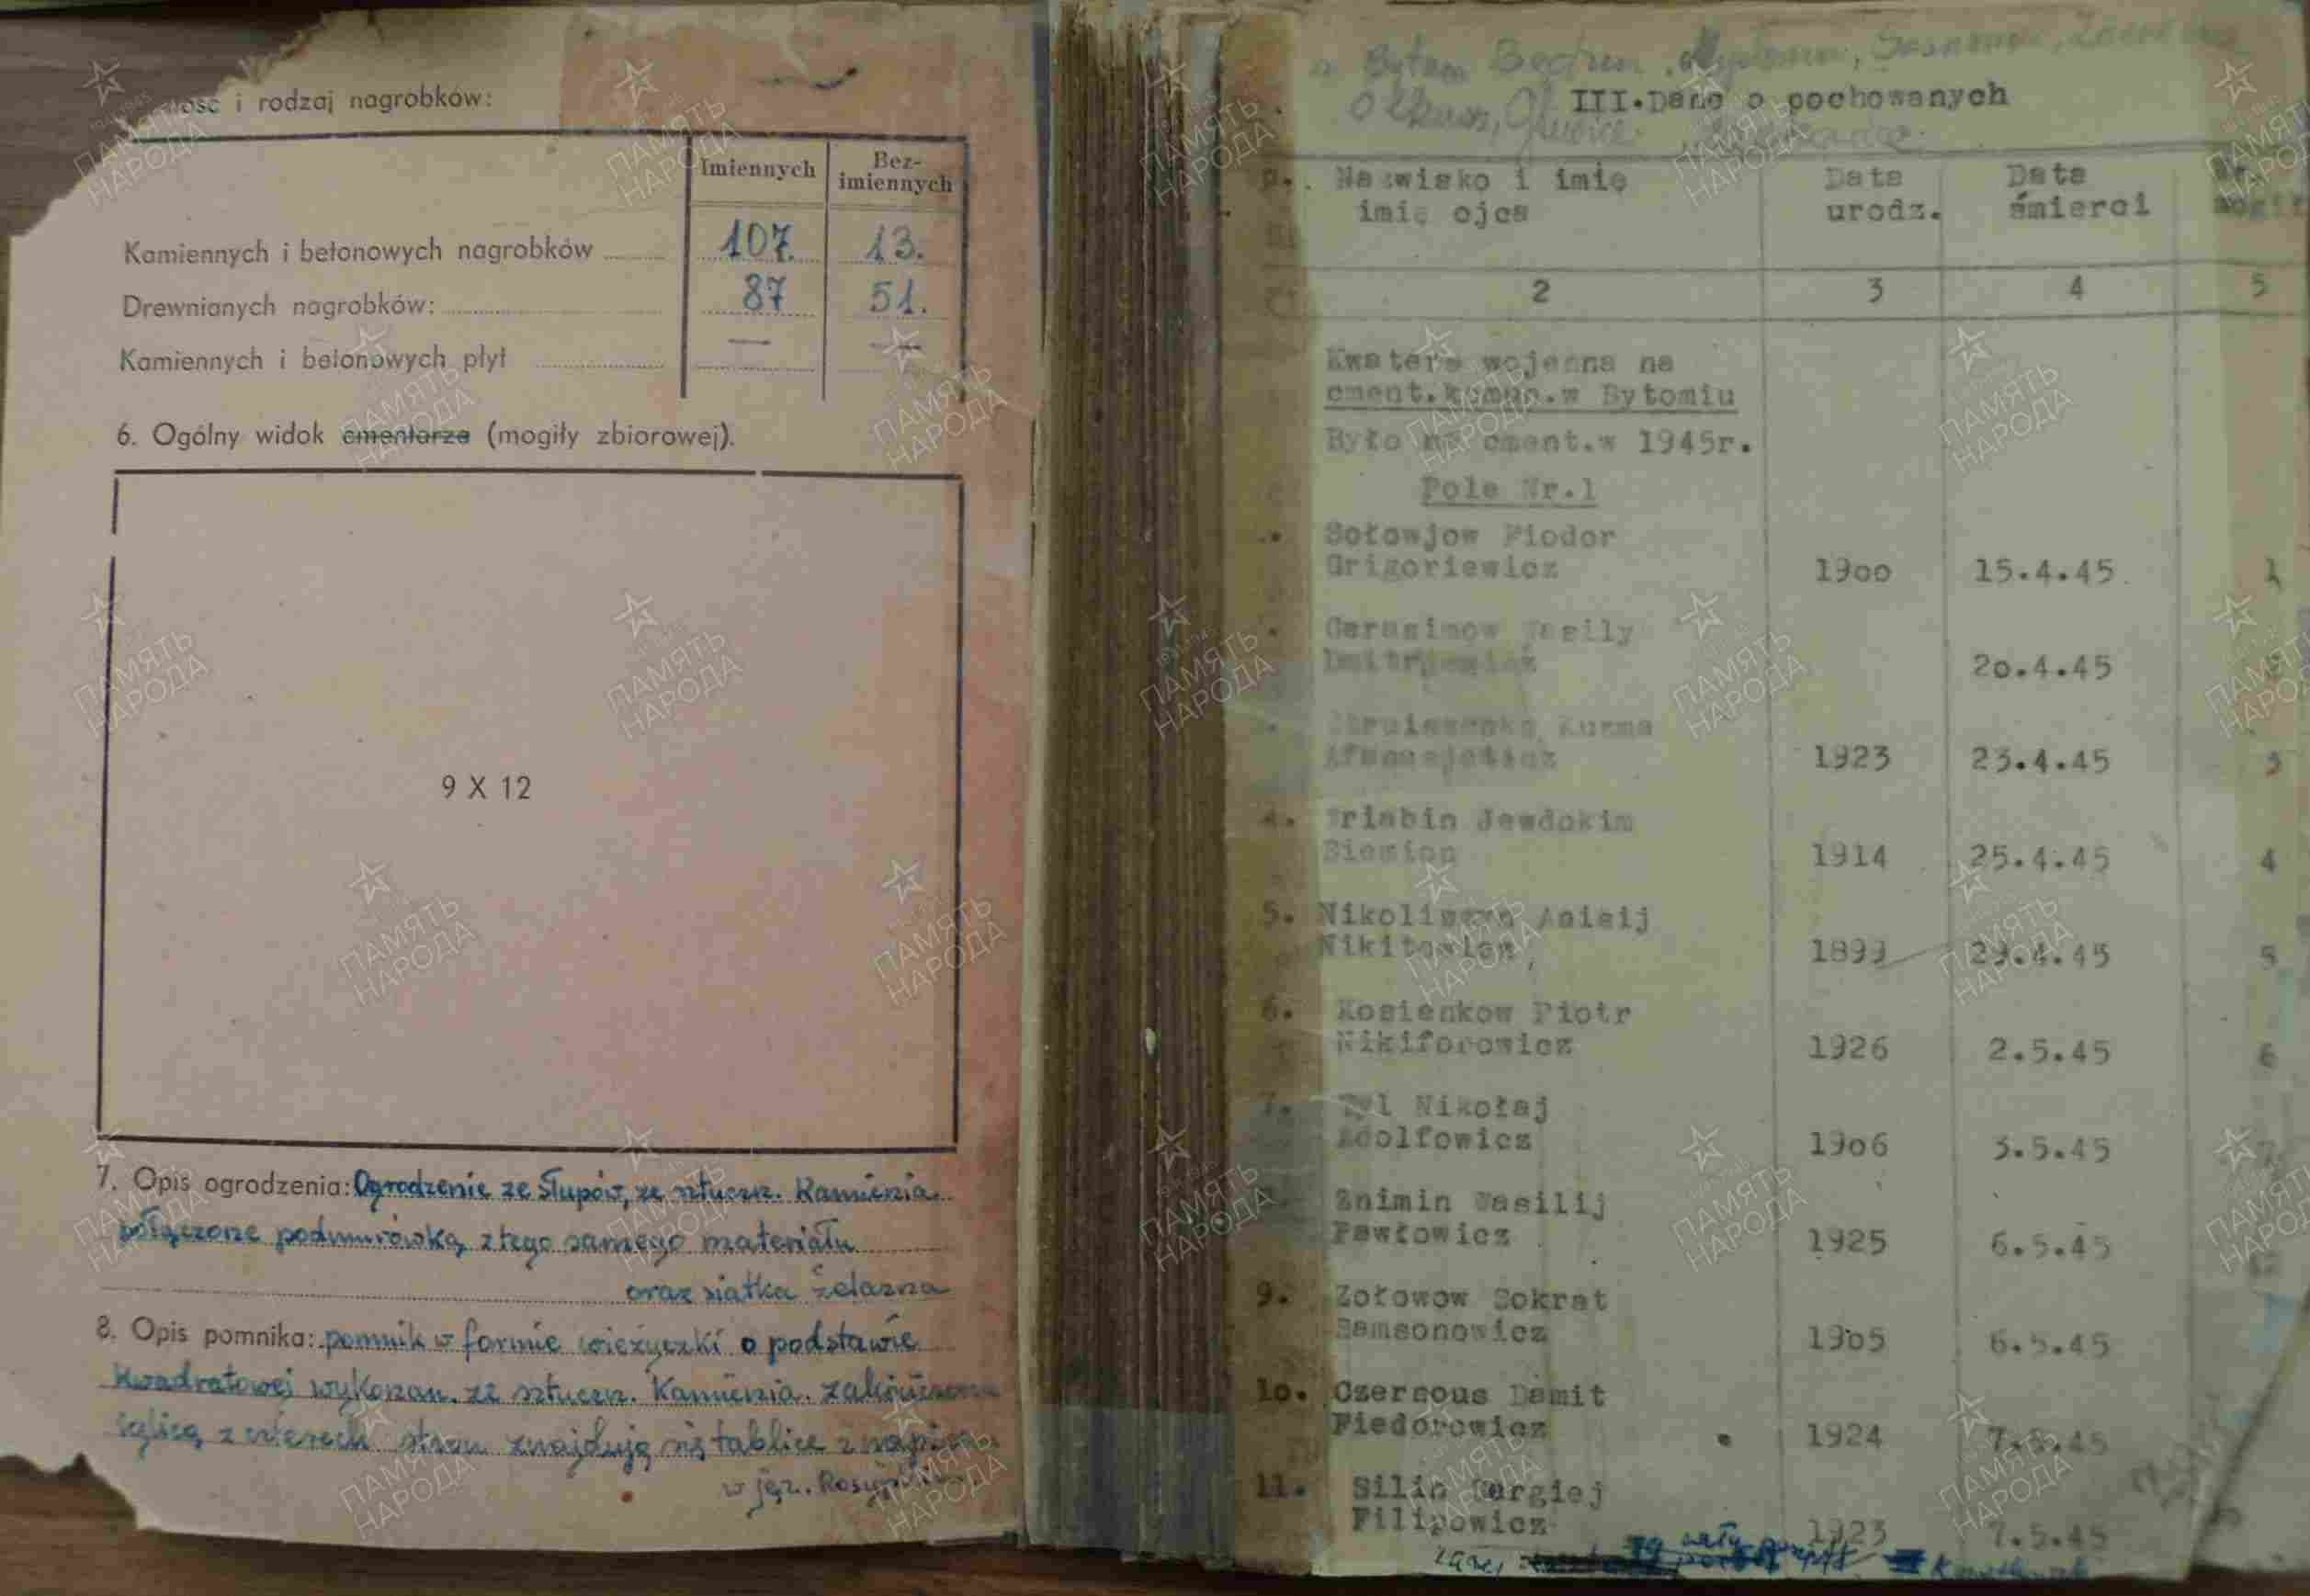 ość i rodzaj nagrobków:
Imiennych
Bez-
imiennych
Kamiennych i betonowych nagrobków 107. 13.
Drewnianych nagrobków: 87 51.
Kamiennych i betonowych płyt — —
6. Ogólny widok cmentarza (mogiły zbiorowej).
9 X 12
7. Opis ogrodzenia: Ogrodzenie ze słupów, ze sztuczn. Kamienia
połączone podmurówką z tego samego materiału
oraz siatka żelazna
8. Opis pomnika: pomnik w formie wieżyczki o podstawie
kwadratowej wykonan. ze sztuczn. Kamienia.
iglicą z czterech stron znajdują się tablice z
w jęz.
Bytom
Olkusz, Gliwice
III. Dane o pochowanych
Nazwisko i imię
imię ojca
Data
urodz.
Data
śmierci
2 3 4 5
Kwatera wojenna na
cment. komun. w Bytomiu
Było na cment. w 1945r.
Pole Nr. 1
Sołowjow Fiodor
Grigoriewicz 1900 15.4.45. 1
Gerasimow Wasily
20.4.45
Kuzma
1923 23.4.45 3
4. Jewdokim
Siemion 1914 25.4.45 4
5. Anisij
1899 29.4.45 5
6. Kosienkow Piotr
Nikiforowicz 1926 2.5.45 6
7. Nikołaj
Adolfowicz 1906 3.5.45 7
Znimin Wasilij
Pawłowicz 1925 6.5.45
9. Zołowow Sokrat
Samsonowicz 1905 6.5.45
10. Czernous Demit
Fiedorowicz 1924 7.5.45
11. Silin Sergiej
Filipowicz 1923 7.5.45
ПАМЯТЬ
НАРОДА